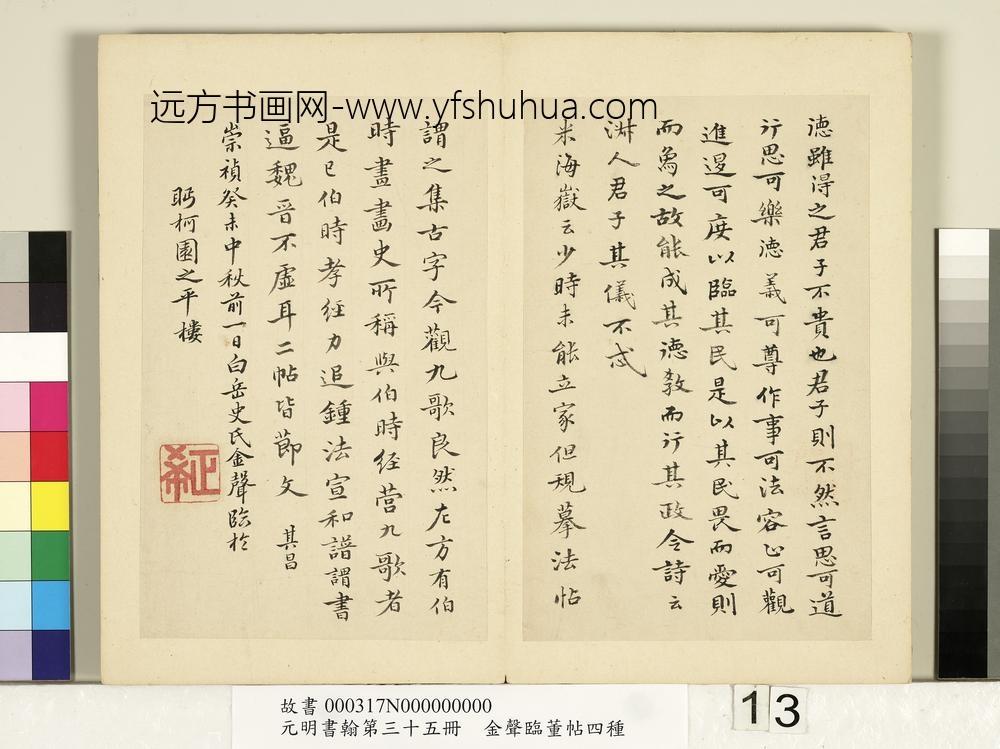 远方书画网-www.yfshuhua.com
德雖得之君子不貴也君子則不然言思可道
行思可樂德義可尊作事可法容止可觀
進退可度以臨其民是以其民畏而愛則
而象之故能成其德教而行其政令詩云
淑人君子其儀不忒
米海嶽云少時未能立家但規摹法帖
謂之集古字今觀九歌良然左方有伯
時畫畫史所稱與伯時經營九歌者
是已伯時孝經力追鍾法宣和譜謂書
逼魏晉不虛耳二帖皆節文 其昌
崇禎癸未中秋前一日白岳史氏金聲臨於
眄柯園之平樓
故書 000317N000000000
元明書翰第三十五冊 金聲臨董帖四種
13